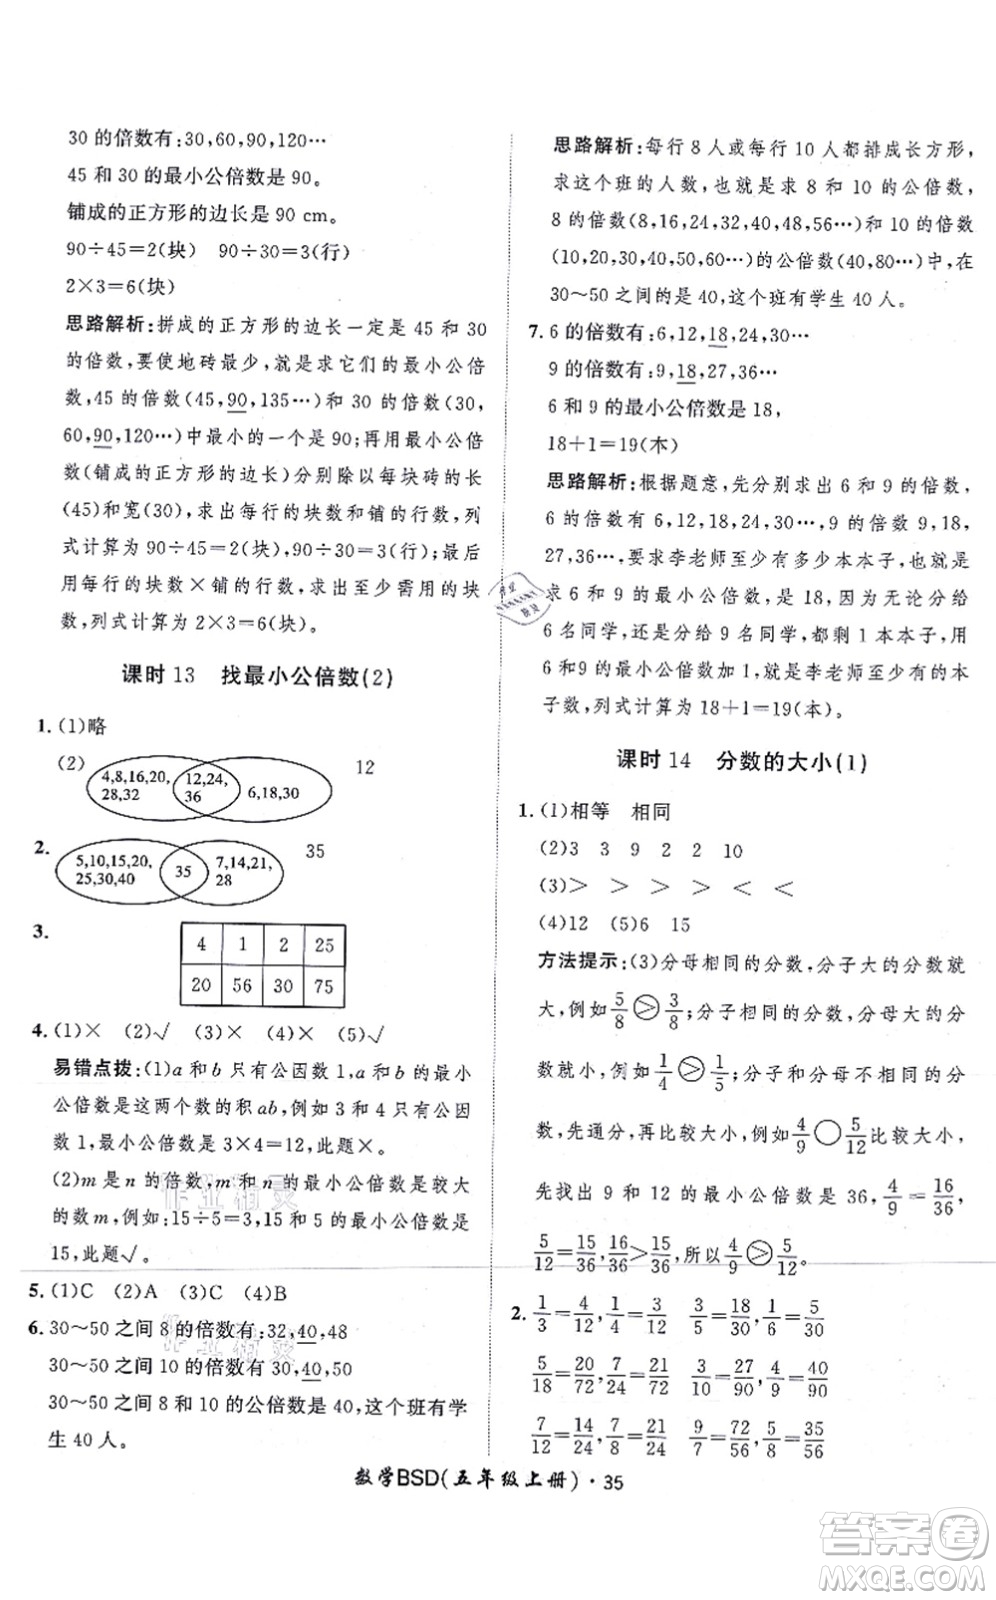 30 的倍数有:30,60,90,120…
45 和 30 的最小公倍数是 90。
铺成的正方形的边长是 90 cm。
90÷45=2(块)　90÷30=3(行)
2×3=6(块)
思路解析:拼成的正方形的边长一定是 45 和 30
的倍数，要使地砖最少，就是求它们的最小公倍
数，45 的倍数(45,90,135…)和 30 的倍数(30,
60,90,120…)中最小的一个是 90；再用最小公倍
数(铺成的正方形的边长)分别除以每块砖的长
(45)和宽(30)，求出每行的块数和铺的行数，列
式计算为 90÷45=2(块)、90÷30=3(行)；最后
用每行的块数×铺的行数，求出至少需用的块
数，列式计算为 2×3=6(块)。
课时 13　找最小公倍数(2)
1. (1)略
(2) 4,8,16,20,28,32　12,24,36　6,18,30　12
2. 5,10,15,20,25,30,40　35　7,14,21,28　35
3. 4　1　2　25
20　56　30　75
4. (1)×　(2)√　(3)×　(4)×　(5)√
易错点拨:(1)a 和 b 只有公因数 1,a 和 b 的最小
公倍数是这两个数的积 ab,例如 3 和 4 只有公因
数 1,最小公倍数是 3×4=12,此题×。
(2)m 是 n 的倍数,m 和 n 的最小公倍数是较大
的数 m,例如:15÷5=3,15 和 5 的最小公倍数是
15,此题√。
5. (1)C　(2)A　(3)C　(4)B
6. 30～50 之间 8 的倍数有:32,40,48
30～50 之间 10 的倍数有 30,40,50
30～50 之间 8 和 10 的公倍数是 40,这个班有学
生 40 人。
思路解析:每行 8 人或每行 10 人都排成长方形，
求这个班的人数，就是求 8 和 10 的公倍数，
8 的倍数(8,16,24,32,40,48,56…)和 10 的倍数
(10,20,30,40,50,60…)的公倍数(40,80…)中，在
30～50 之间的是 40,所以这个班有学生 40 人。
7. 6 的倍数有:6,12,18,24,30…
9 的倍数有:9,18,27,36…
6 和 9 的最小公倍数是 18,
18+1=19(本)
思路解析:根据题意，先分别求出 6 和 9 的倍数，
6 的倍数有 6,12,18,24,30…,9 的倍数有 9,18,
27,36…,要求李老师至少有多少本本子，就是
求 6 和 9 的最小公倍数，是 18,因为无论分给
6 名同学，还是分给 9 名同学，都剩 1 本本子，用
6 和 9 的最小公倍数加 1 就是李老师至少有的本
子数，列式计算为 18+1=19(本)。
课时 14　分数的大小(1)
1. (1)相等　相同
(2)3　3　9　2　2　10
(3)＞　＞　＞　＞　＜　＜
(4)12　(5)6　15
方法提示:(3)分母相同的分数，分子大的分数就
大，例如 5/8 ＞ 3/8；分子相同的分数，分母大的分
数就小，例如 1/4 ＞ 1/5；分子和分母不相同的分
数，先通分，再比较大小，例如 4/9 ○ 5/12 比较大小，
先找出 9 和 12 的最小公倍数是 36, 4/9=16/36,
5/12=15/36, 16/36＞15/36, 所以 4/9 ＞ 5/12。
2. 1/3=4/12, 1/4=3/12　3/5=18/30, 1/6=5/30
5/18=20/72, 7/24=21/72　3/10=27/90, 4/9=40/90
7/12=14/24, 7/8=21/24　9/7=72/56, 5/7=40/56
数学BSD(五年级上册)·35
作业精灵
答案圈
MXQE.COM